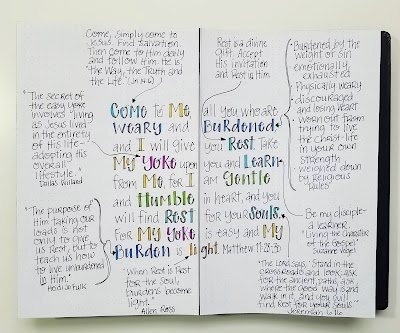 Come, simply come to
Jesus. Find Salvation.
Then come to Him daily
and follow Him. He is,
"the Way, the Truth and
the Life." (Jn 14:6)
"The secret of
the easy yoke
involves "living
as Jesus lived
in the entirety
of His life -
adopting His
overall
lifestyle."
Dallas Willard
"The purpose of
Him taking our
loads is not
only to give
us Rest but to
teach us how
to live unburdened
in Him."
Come to Me,
weary and
and I will give
My Yoke upon
from Me, for I
and Humble
will find Rest
for My Yoke
Burden is
"When Rest is Rest
for the Soul,
burdens become
light."
Allen Ross
Rest is a divine
Gift. Accept
His invitation
and Rest in Him
all you who are
Burdened,
you Rest. Take
you and Learn
am Gentle
in heart, and you
for your Souls.
is easy and My
light. Matthew 11:28-30
• Burdened by the
weight of sin
• emotionally
exhausted
• Physically weary
• discouraged
and losing heart
• worn out from
trying to live
the Christ-life
in your own
strength
• weighed down
by religious
"rules"
Be my disciple -
a learner.
"Living the Character
of the Gospel"
Suzanne
"The Lord says, 'Stand in the
crossroads and look; ask
for the ancient paths, ask
where the good way is and
walk in it, and you will
find Rest for your souls.'"
Jeremiah 6:16